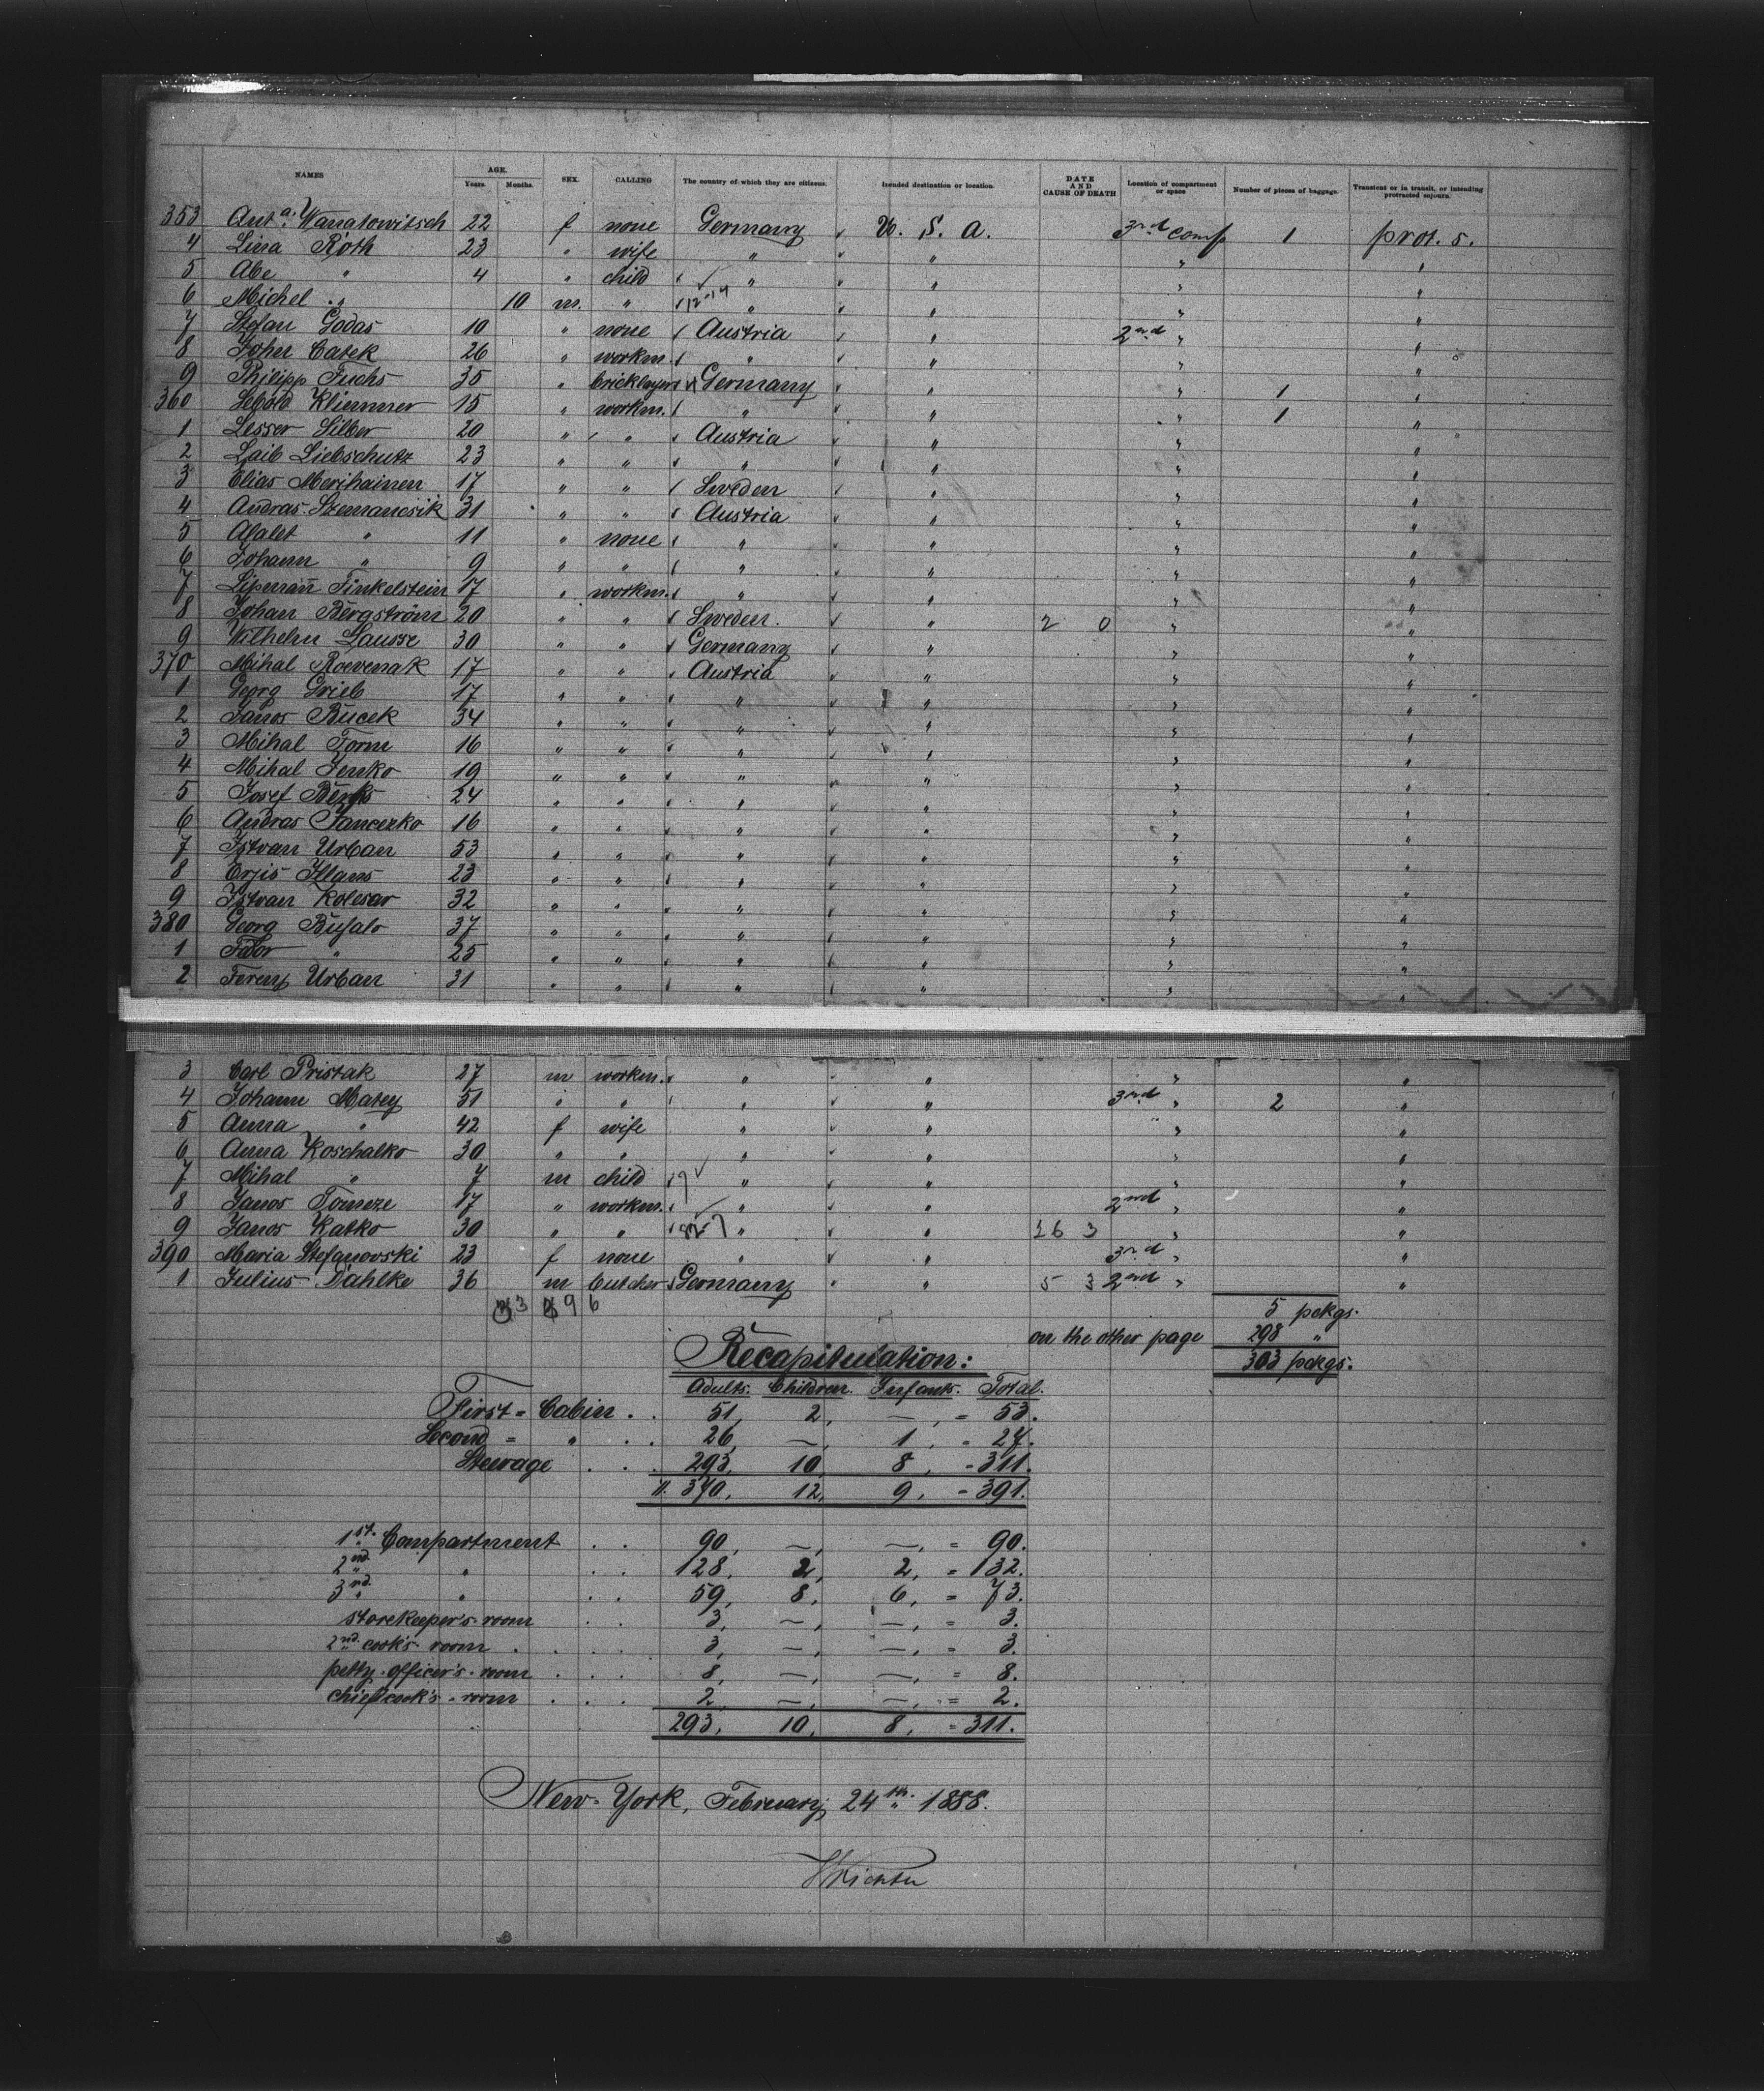 NAMES AGE. Years. Months. SEX. CALLING The country of which they are citizens. Intended destination or location. DATE AND CAUSE OF DEATH Location of compartment or space Number of pieces of baggage. Transient or in transit, or intending protracted sojourn.
353 Ant.a Wanatowitsch 22 f none Germany U. S. A. 3rd comp 1 prot. s.
4 Lina Roth 23 " wife " " " "
5 Abe " 4 " child " " " "
6 Michel " 10 m. " 12-14 " " " "
7 Stefan Godas 10 " none Austria " 2nd " "
8 Joher Catek 26 " workm. " " " "
9 Philipp Fuchs 35 " bricklayer Germany " " 1 "
360 Sebold Kliemmer 15 " workm. " " " 1 "
1 Lesser Silber 20 " " Austria " " "
2 Laib Liebschutz 23 " " " " " "
3 Elias Merihainen 17 " " Sweden " " "
4 Andras Szemancsik 31 " " Austria " " "
5 Afalet " 11 " none " " " "
6 Johann " 9 " " " " " "
7 Lipmann Finkelstein 17 " workm. " " " "
8 Johan Bergström 20 " " Sweden. " 2 0 " "
9 Wilhelm Lausse 30 " " Germany " " "
370 Mihal Roevenak 17 " " Austria " " "
1 Georg Grieb 17 " " " " " "
2 Janos Bucek 34 " " " " " "
3 Mihal Torm 16 " " " " " "
4 Mihal Jenko 19 " " " " " "
5 Josef 24 " " " " " "
6 Andras Janeczko 16 " " " " " "
7 Istvan Urban 53 " " " " " "
8 Erjis Illans 23 " " " " " "
9 Istvan Kolesar 32 " " " " " "
380 Georg Bufalo 37 " " " " " "
1 Fdor " 25 " " " " " "
2 Ferenz Urban 31 " " " " " "
3 Carl Pristak 27 m workm. " " " "
4 Johann Matey 51 " " " " 3rd " 2 "
5 Anna " 42 f wife " " " "
6 Anna Koschalko 30 " " " " " "
7 Mihal " 7 m child 9 " " " "
8 Janos Tomeze 17 " workm. " " 2nd " "
9 Janos Katko 30 " " " " 26 3 " "
390 Maria Stefanovski 23 f none " " 3rd " "
1 Julius Dahlke 36 m butcher Germany " 5 3 2nd " "
3 9 6
5 pckgs.
on the other page 298 "
303 pckgs.
Recapitulation:
Adults. Children. Infants. Total.
First = Cabin . . 51, 2, —, = 53.
Second = " . . 26, —, 1, = 27.
Steerage . . . 293, 10, 8, = 311.
370, 12, 9, = 391.
1st. Compartment . . 90, —, —, = 90.
2nd. " . . 128, 2, 2, = 132.
3rd. " . . 59, 8, 6, = 73.
storekeeper's room . . 3, —, —, = 3.
2nd. cook's room . . . . 3, —, —, = 3.
petty-officer's-room . . . 8, —, —, = 8.
chiefcook's-room . . . 2, —, —, = 2.
293, 10, 8, = 311.
New-York, February 24th. 1888.
Richter